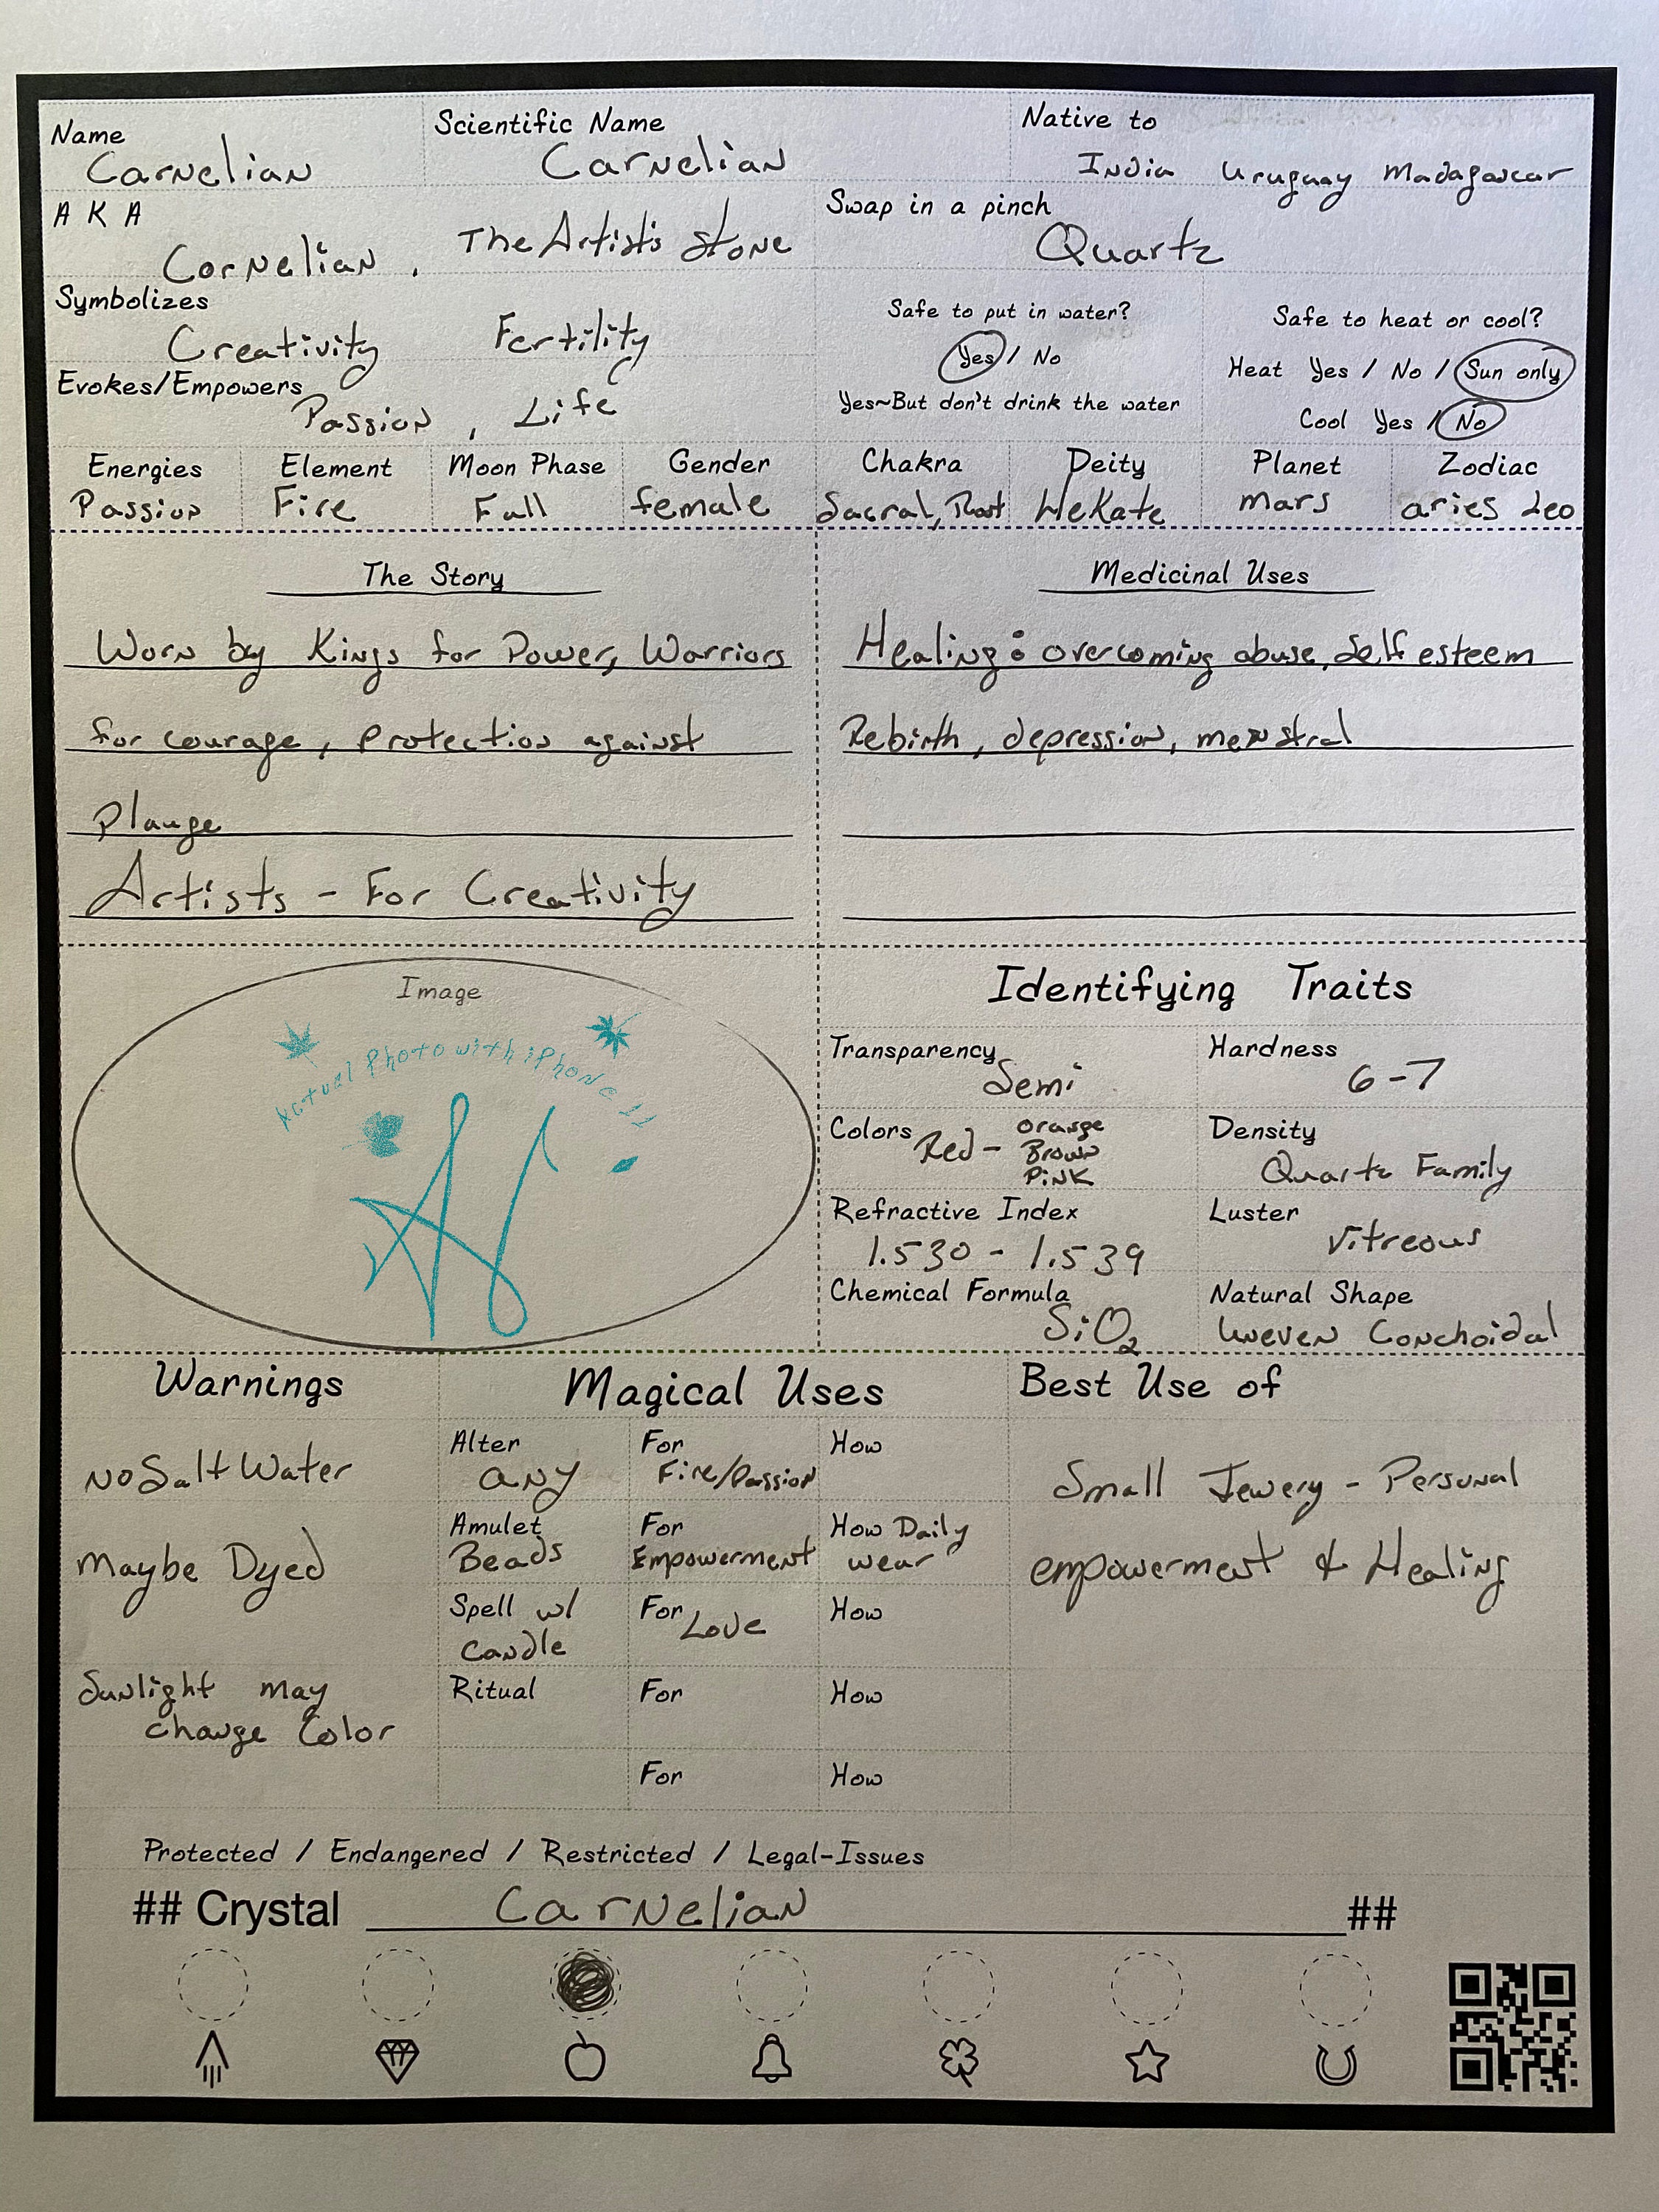 Name Scientific Name Native to
Carnelian Carnelian India Uruguay Madagascar
A K A Swap in a pinch
Cornelian, The Artist's Stone Quartz
Symbolizes Safe to put in water? Safe to heat or cool?
Creativity Fertility Yes / No Heat Yes / No / Sun only
Evokes/Empowers Yes~But don't drink the water Cool Yes / No
Passion, Life
Energies Element Moon Phase Gender Chakra Deity Planet Zodiac
Passion Fire Full female Sacral, Root Hekate mars aries Leo
The Story
Worn by Kings for Power, Warriors
for courage, Protection against
Plauge
Artists - For Creativity
Medicinal Uses
Healing: overcoming abuse, Self esteem
Rebirth, depression, menstral
Image
Actual Photo with iPhone 11
Identifying Traits
Transparency Hardness
Semi 6-7
Colors Density
Red - Orange
Brown
Pink
Quartz Family
Refractive Index Luster
1.530 - 1.539 Vitreous
Chemical Formula Natural Shape
SiO2 Uneven Conchoidal
Warnings
No Salt Water
Maybe Dyed
Sunlight may
change Color
Magical Uses
Alter For How
any Fire/Passion
Amulet For How Daily
Beads Empowerment wear
Spell w/ For Love How
Candle
Ritual For How
For How
Best Use of
Small Jewery - Personal
empowerment & Healing
Protected / Endangered / Restricted / Legal-Issues
## Crystal Carnelian ##